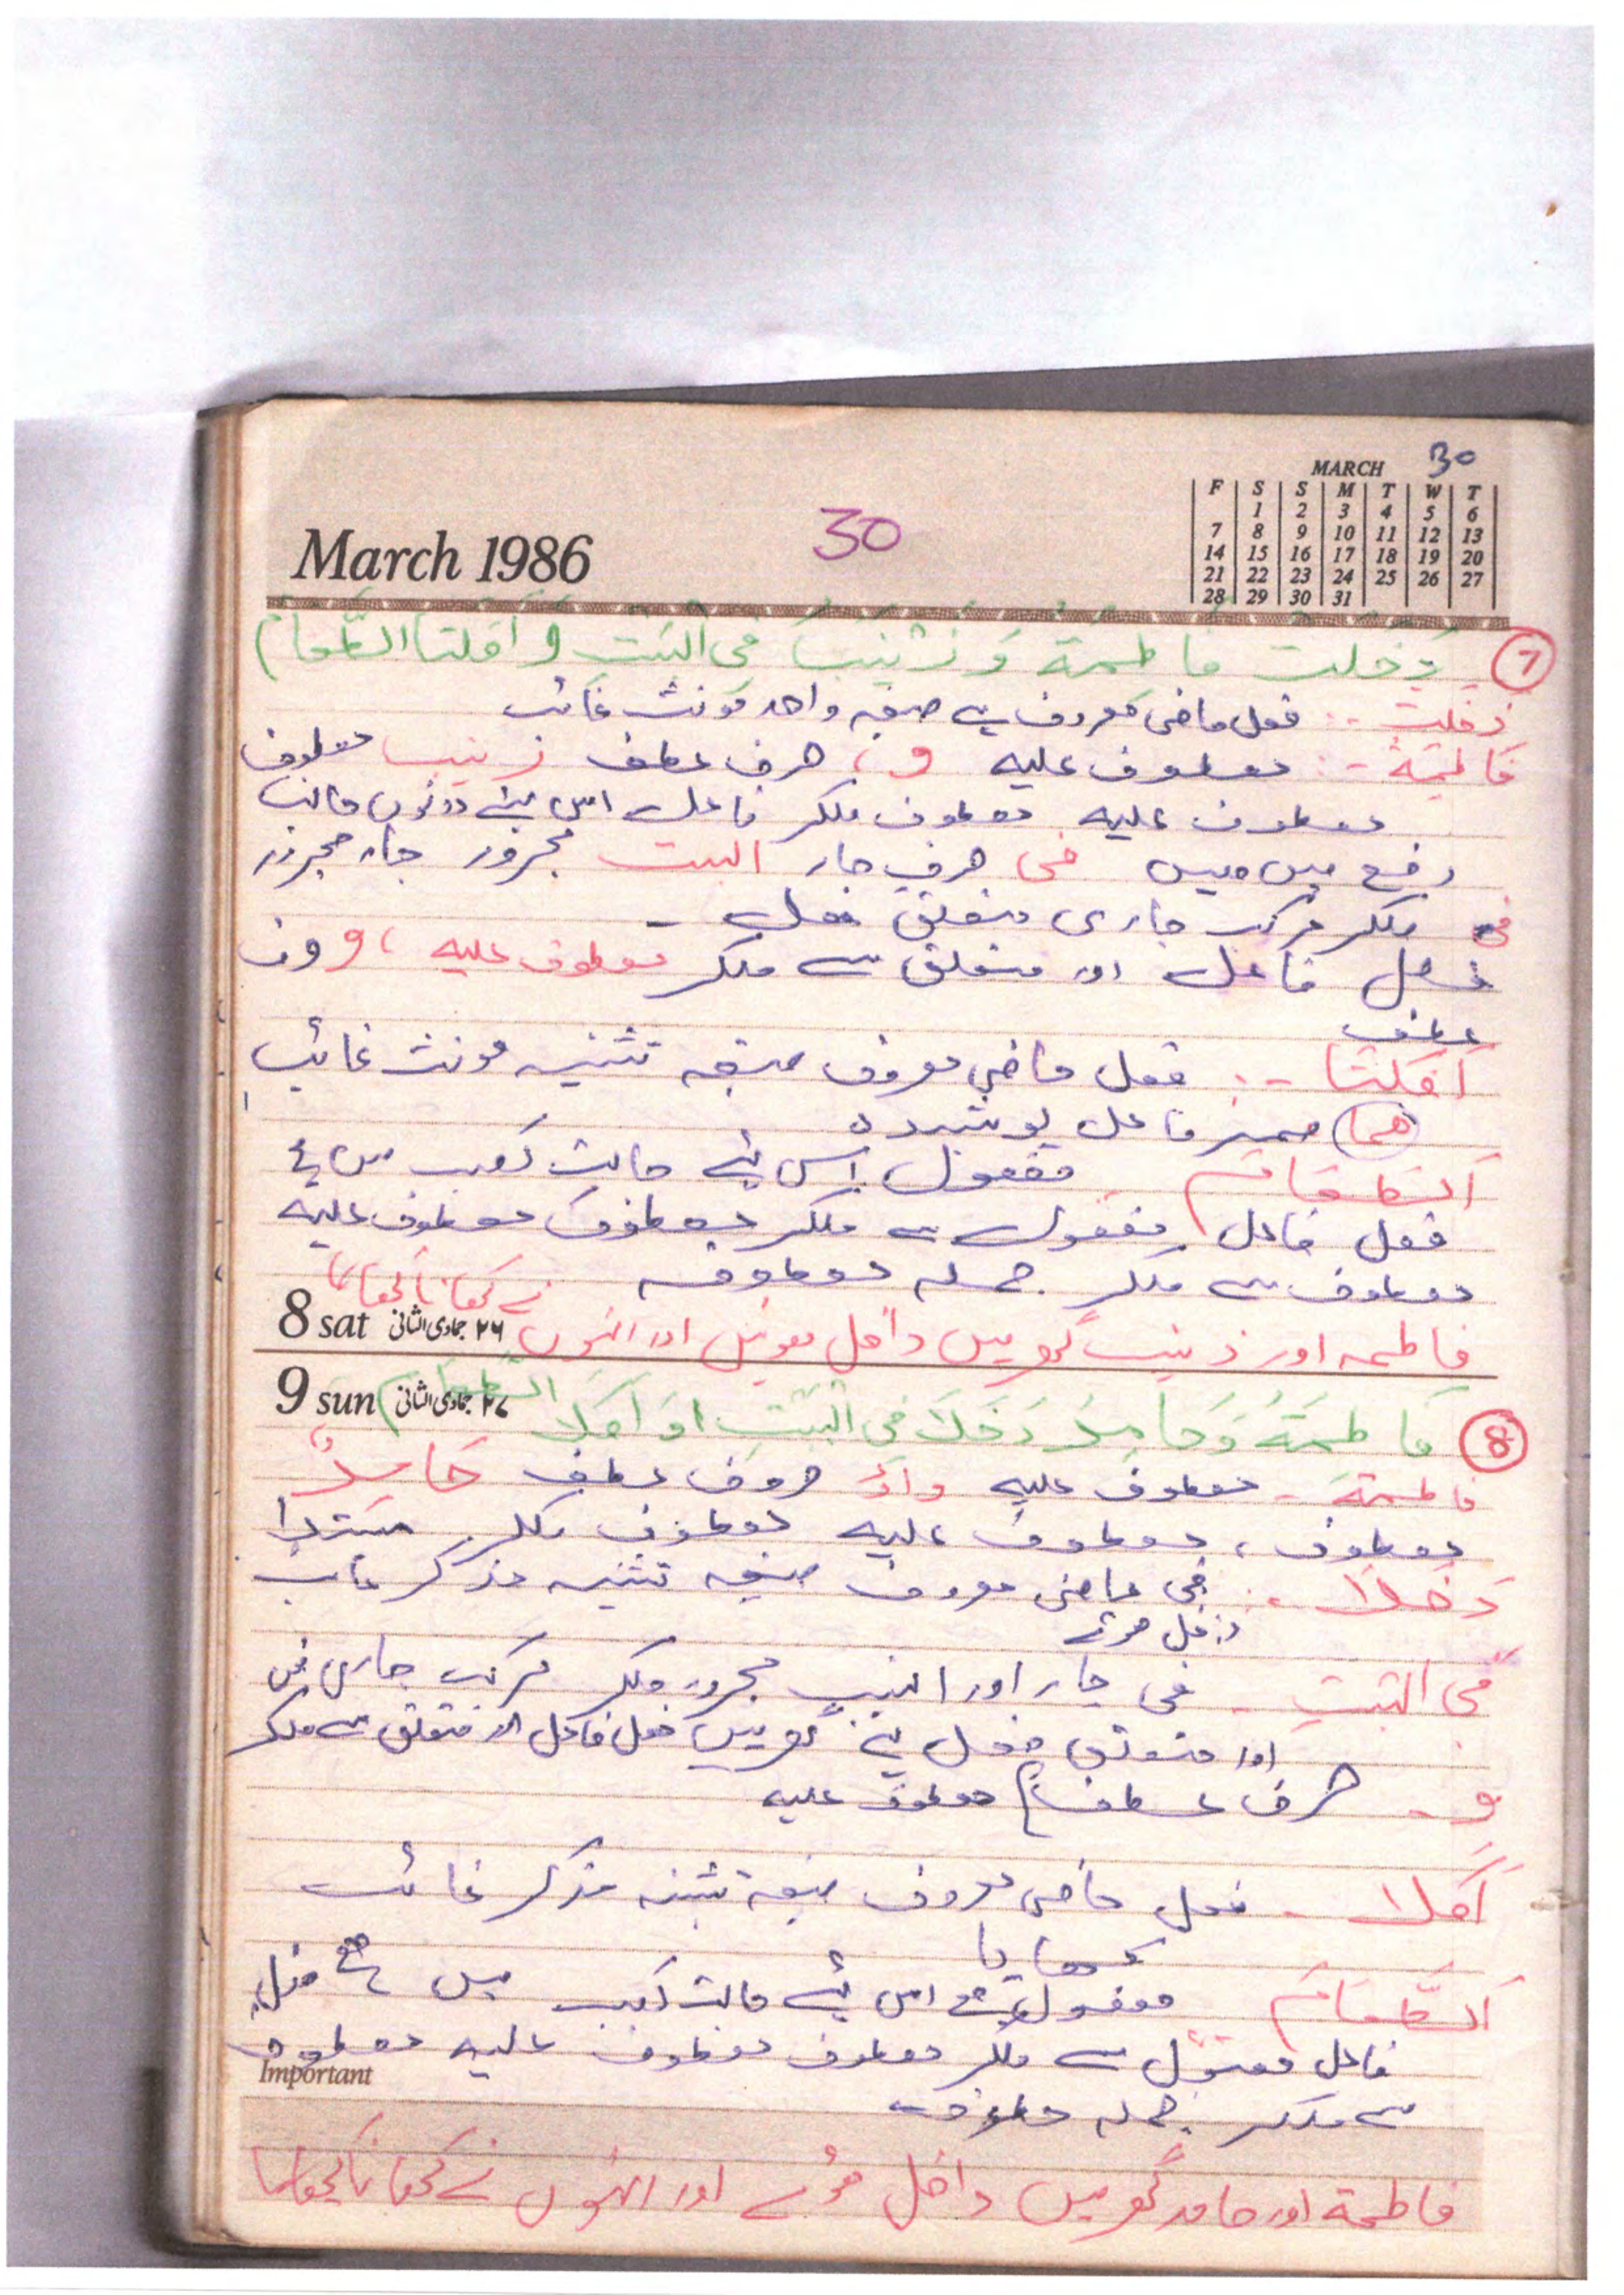 30
MARCH
F S S M T W T
1 2 3 4 5 6
7 8 9 10 11 12 13
14 15 16 17 18 19 20
21 22 23 24 25 26 27
28 29 30 31
March 1986
30
7 دَخَلَتْ فَاطِمَةُ وَ زَيْنَبُ فِی الْبَيْتِ وَ اَكَلَتَا الطَّعَامَ
دَخَلَتْ :- فعل ماضی معروف ہے صیغہ واحد مونث غائب
فَاطِمَةُ :- معطوف علیہ و، حرف عطف زینب معطوف
معطوف علیہ معطوف ملکر فاعل اس لئے دونوں حالت
رفع میں ہیں فی حرف جار البیت مجرور جار مجرور
فی ملکر مرکب جاری متعلق فعل -
فعل فاعل اور متعلق سے ملکر معطوف علیہ، و حرف
عطف
اَكَلَتَا :- فعل ماضی معروف صیغہ تثنیہ مونث غائب
(ھما) ضمیر فاعل پوشیدہ
اَلطَّعَامَ مفعول اس لئے حالت نصب میں ہے
فعل فاعل مفعول سے ملکر معطوف معطوف علیہ
معطوف سے ملکر جملہ معطوفہ نے کھانا کھایا
8 sat ۲۶ جمادی الثانی فاطمہ اور زینب گھر میں داخل ہوئیں اور انہوں
9 sun ۲۷ جمادی الثانی الطَّعَامَ
8 فَاطِمَةُ وَ حَامِدٌ دَخَلَا فِی الْبَيْتِ وَ اَكَلَا
فاطمة - معطوف علیہ واؤ حروف عطف حَامِدٌ
معطوف، معطوف علیہ معطوف ملکر مبتدا
دَخَلَا :- ماضی معروف صیغہ تثنیہ مذکر غائب
داخل ہوئے
فی البیتِ - فی جار اور البیتِ مجرور ملکر مرکب جاری فی
اور متعلق فعل ہے گھر میں فعل فاعل اور متعلق سے ملکر
و - حرف عطف معطوف علیہ
اَكَلَا - فعل ماضی معروف صیغہ تثنیہ مذکر غائب
کھایا
اَلطَّعَامَ مفعول ہے اس لئے حالت نصب میں ہے فعل
فاعل مفعول سے ملکر معطوف معطوف علیہ معطوف
Important
سے ملکر جملہ معطوفہ
فاطمة اور حامد گھر میں داخل ہوئے اور انہوں نے کھانا کھایا